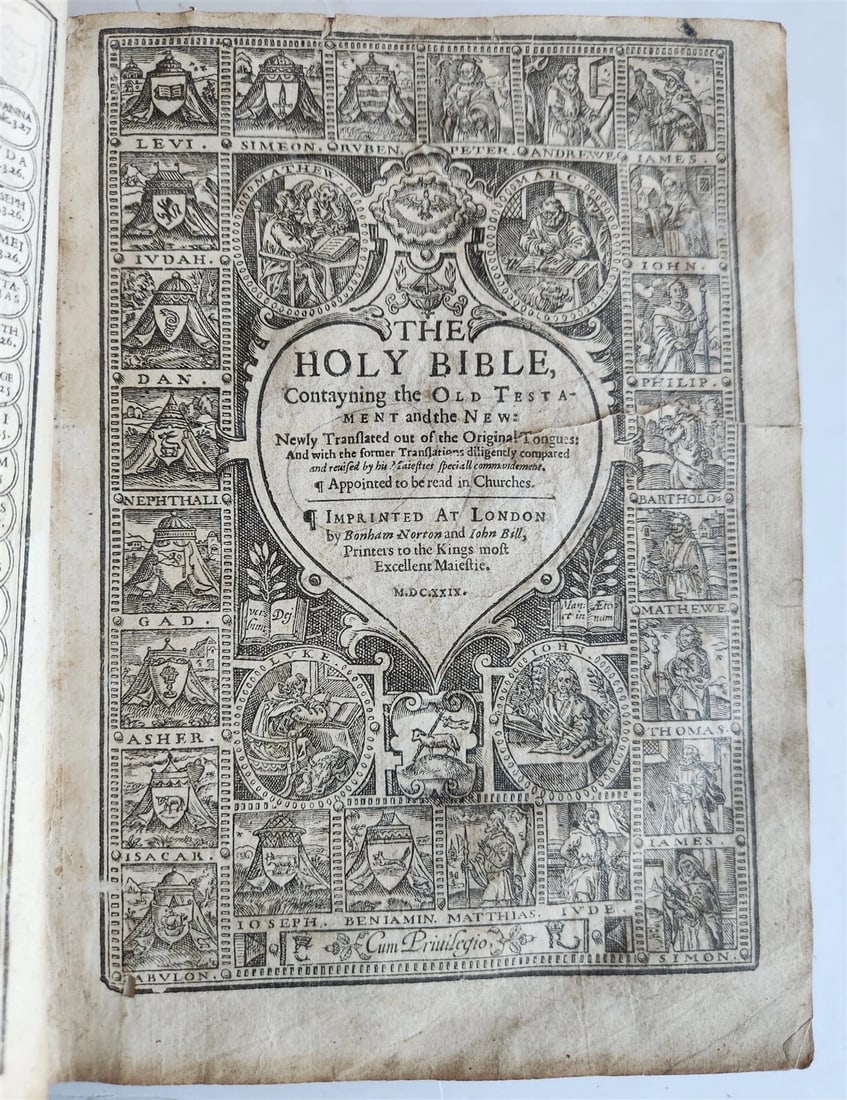 LEVI. SIMEON. RVBEN. PETER. ANDREWE IAMES.
MATHEW. MARC.
IVDAH. IOHN.
DAN. PHILIP.
THE
HOLY BIBLE,
Contayning the OLD TESTA-
MENT and the NEW:
Newly Tranſlated out of the Original Tongues:
And with the former Tranſlations diligently compared
and reuiſed by his Maieſties ſpeciall commandement.
¶ Appointed to be read in Churches.
¶ IMPRINTED AT LONDON
by Bonham Norton and Iohn Bill,
Printers to the Kings moſt
Excellent Maieſtie.
M.DC.XXIX.
NEPHTHALI. BARTHOLO:
GAD. MATHEWE
verbum Dei
Manet in
LVKE. IOHN.
ASHER. THOMAS.
ISACAR. IAMES
IOSEPH. BENIAMIN. MATTHIAS. IVDE
ABVLON. SIMON.
Cum Privilegio.